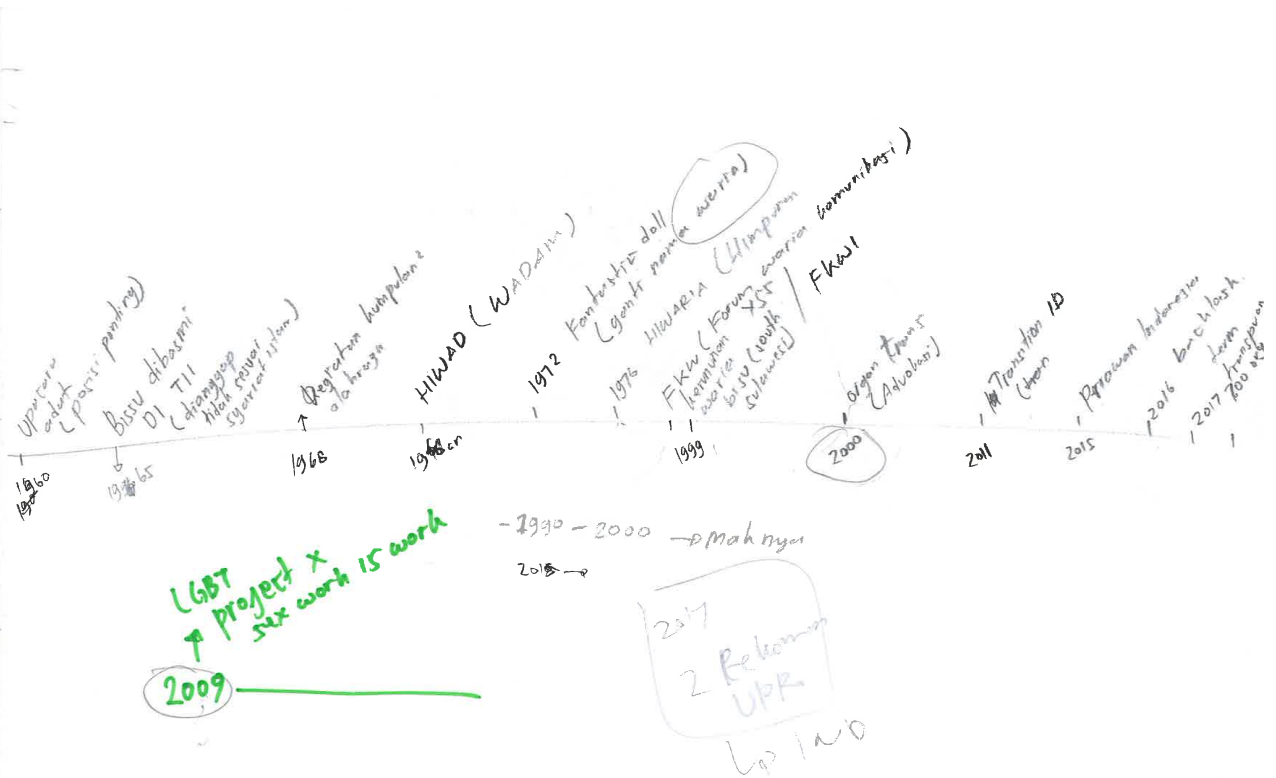 upacara
adat
(posisi penting)
1960
Bissu dibasmi
DI TII
(dianggap
tidak sesuai
syariat islam)
1965
Kegiatan kumpulan²
olahraga
1968
HIWAD (WADAM)
1968an
1972 Fantastic doll
(ganti nama waria)
1976 HIWARIA (Himpunan
FKW (Forum waria komunikasi)
/ FKWI
waria
bisu (south
sulawesi)
1999
organ trans
(Advokasi)
2000
Transition ID
(tran
2011
Perawan Indonesia
2015
2016 backlash
2017 term
transpuan
200 org
LGBT
project X
sex work is work
2009
-1990 - 2000
2017
2 Rekomen
UPR
IND